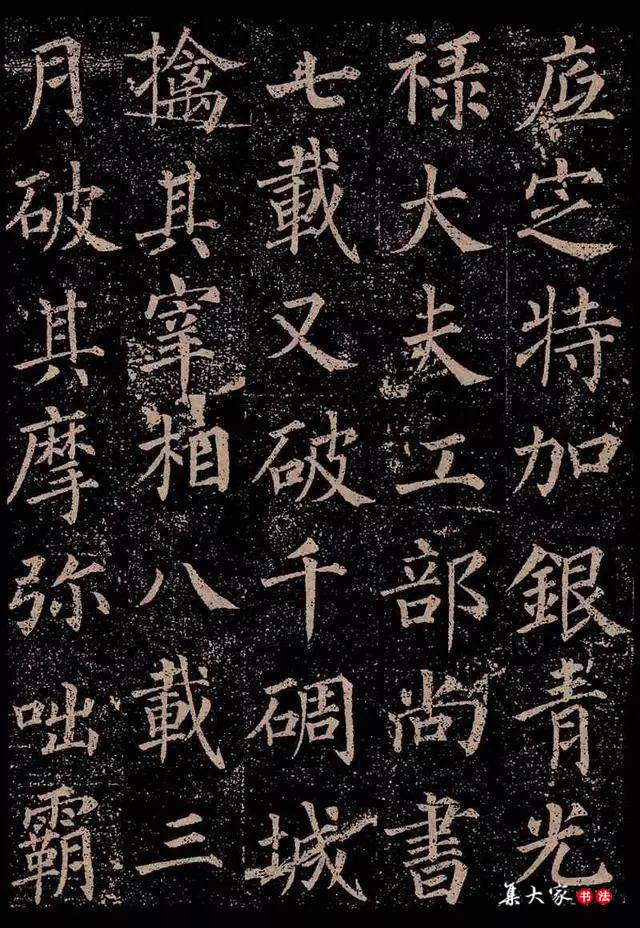 㢈定特加銀青光
禄大夫工部尚書
七載又破千碉城
擒其宰相八載三
月破其摩弥咄霸
集大家书法